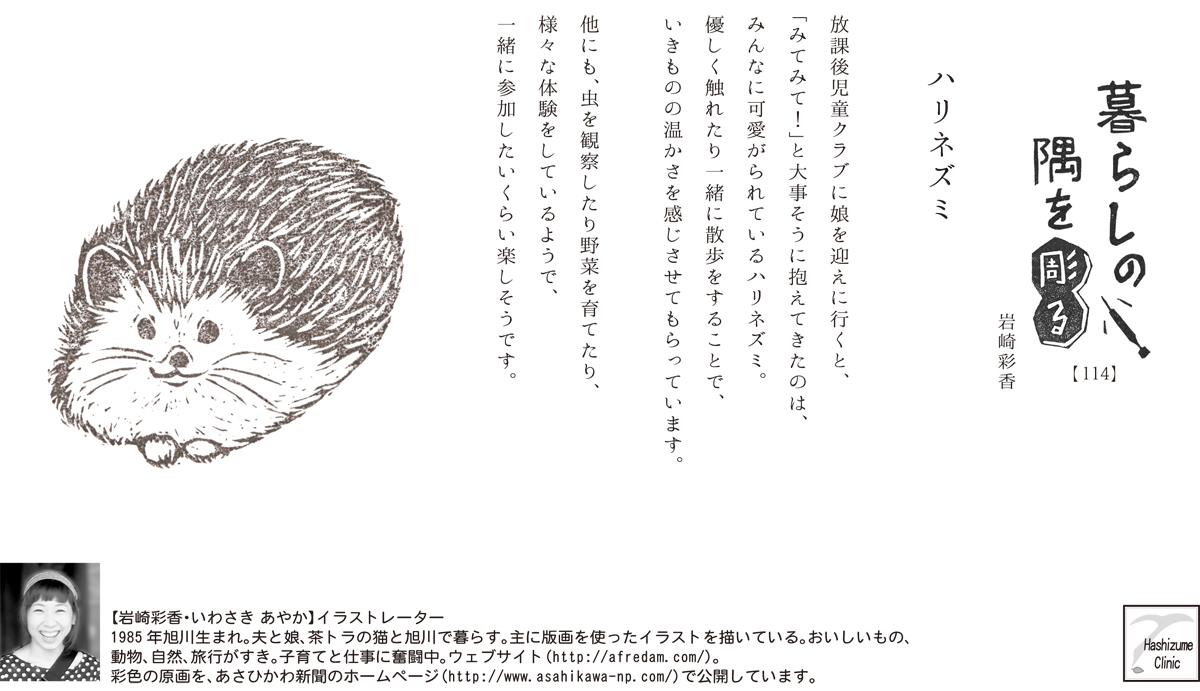 暮らしの
隅を彫る
【114】
岩崎彩香
ハリネズミ
放課後児童クラブに娘を迎えに行くと、
「みてみて！」と大事そうに抱えてきたのは、
みんなに可愛がられているハリネズミ。
優しく触れたり一緒に散歩をすることで、
いきものの温かさを感じさせてもらっています。
他にも、虫を観察したり野菜を育てたり、
様々な体験をしているようで、
一緒に参加したいくらい楽しそうです。
【岩崎彩香・いわさき あやか】イラストレーター
1985年旭川生まれ。夫と娘、茶トラの猫と旭川で暮らす。主に版画を使ったイラストを描いている。おいしいもの、
動物、自然、旅行がすき。子育てと仕事に奮闘中。ウェブサイト(http://afredam.com/)。
彩色の原画を、あさひかわ新聞のホームページ(http://www.asahikawa-np.com/)で公開しています。
Hashizume
Clinic